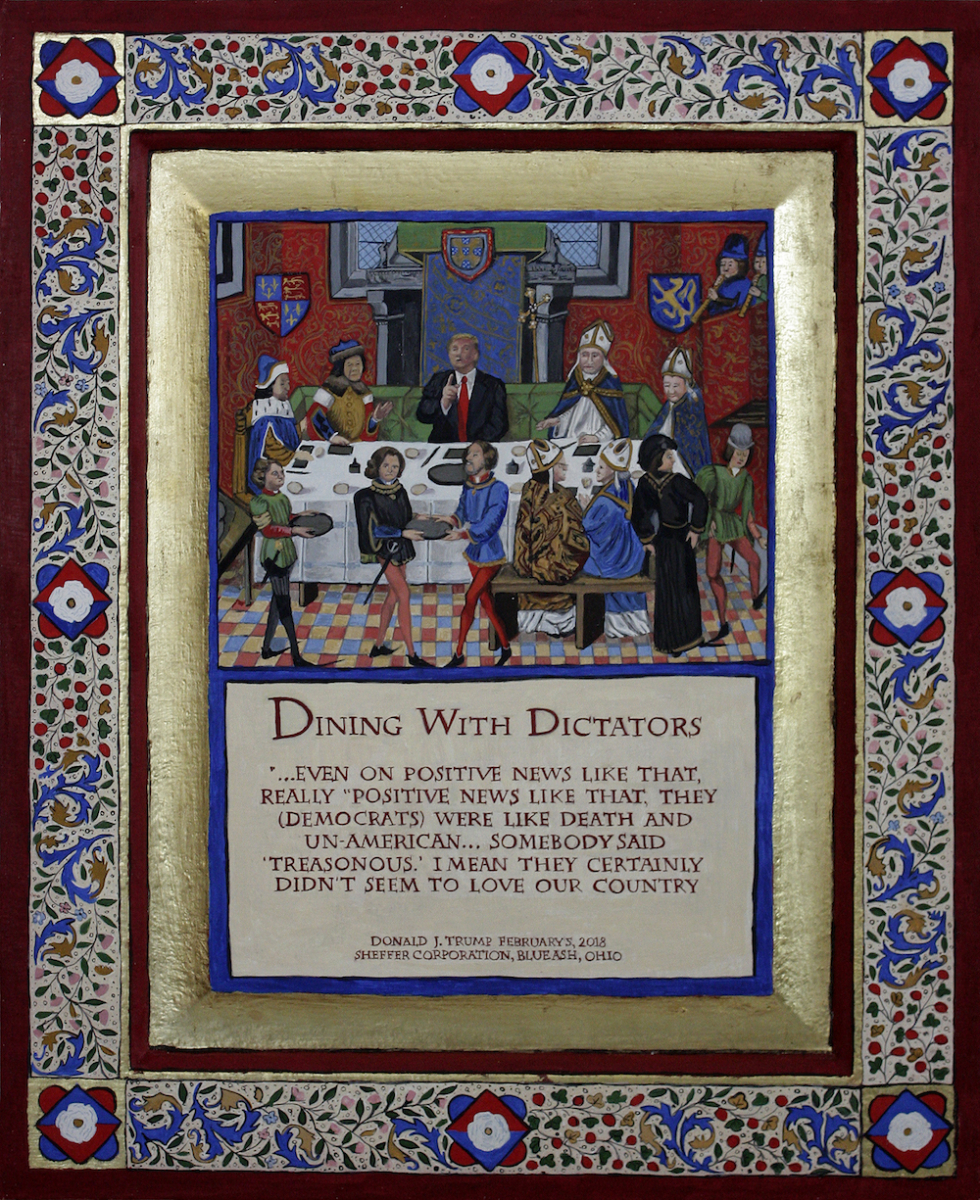 DINING WITH DICTATORS
"...EVEN ON POSITIVE NEWS LIKE THAT,
REALLY "POSITIVE NEWS LIKE THAT, THEY
(DEMOCRATS) WERE LIKE DEATH AND
UN-AMERICAN... SOMEBODY SAID
'TREASONOUS.' I MEAN THEY CERTAINLY
DIDN'T SEEM TO LOVE OUR COUNTRY
DONALD J. TRUMP FEBRUARY 5, 2018
SHEFFER CORPORATION, BLUE ASH, OHIO